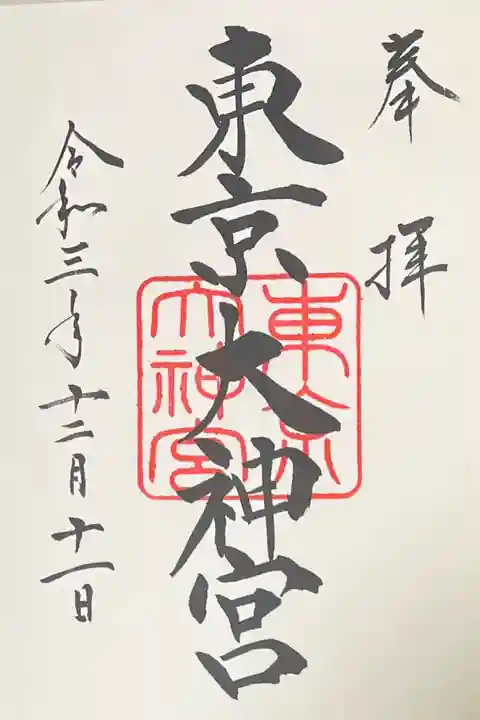 奉拝
東京大神宮
東京大神宮
令和三年十二月十一日